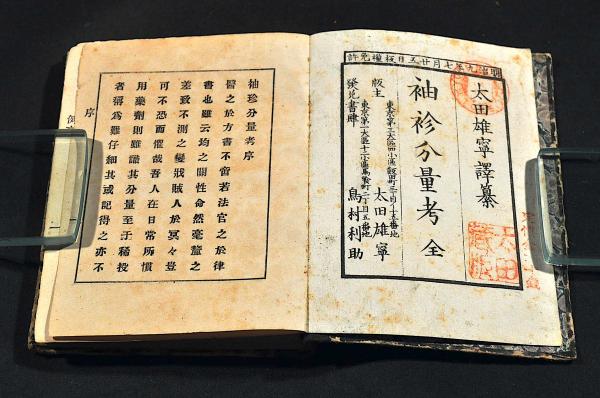 明治九年七月廿五日板權免許
太田雄寧譯纂
袖珍分量考 全
版主 東京第三大區四小區飯田町二丁目十五番地 太田雄寧
發兌書肆 東京第一大區十二小區馬喰町二丁目五番地 島村利助
太田藏版
袖珍分量考序
醫之於方書不啻若法官之於律
書也雖云均之關性命然毫釐之
差致不測之變戕賊人於冥々豈
可不恐而懼哉吾人在日常所慣
用藥劑則雖識其分量至于稀投
者稱為難仔細其或記得之亦不
序